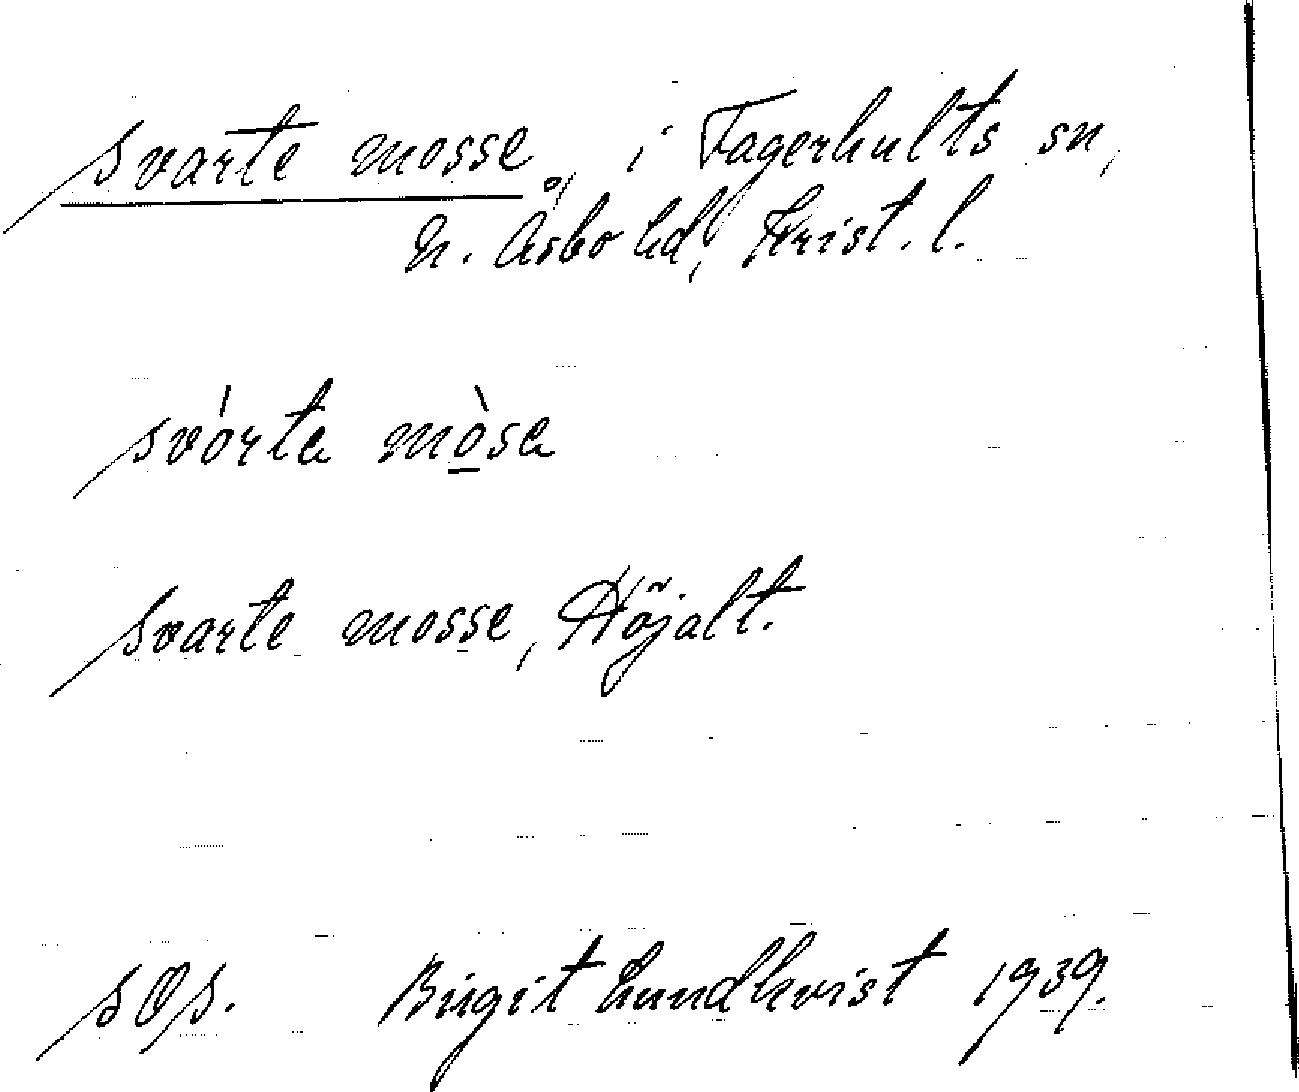 svarte mosse, i Fagerhults sn,
N. Åsbo hd, Krist. l.
svórte mòse
Svarte mosse, Höjalt.
Birgit Lundkvist 1939.